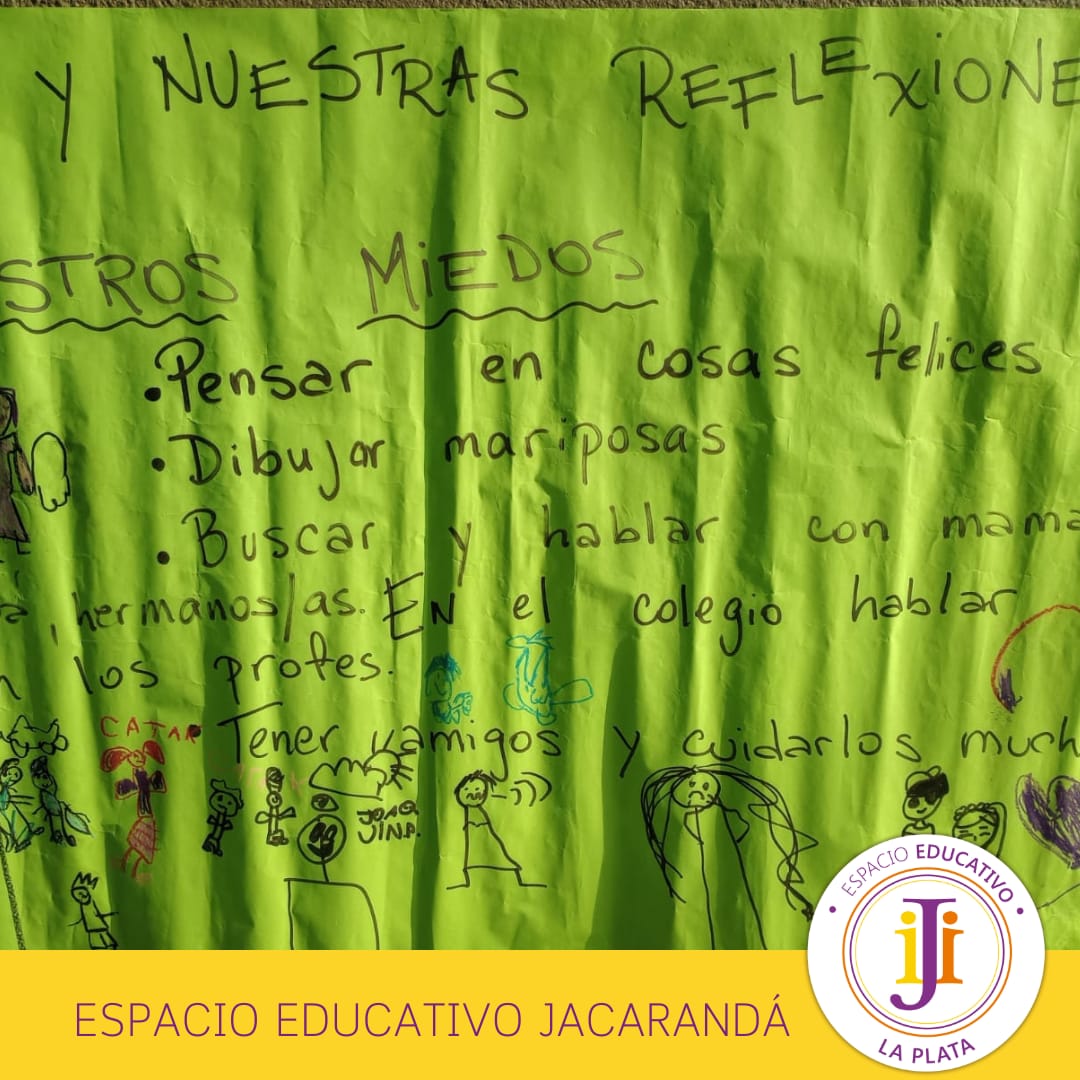 Y NUESTRAS REFLEXIONE
STROS MIEDOS
•Pensar en cosas felices
•Dibujar mariposas
•Buscar y hablar con mama
, hermanos/as. EN el colegio hablar
los profes.
CATA
Tener amigos y cuidarlos much
JOAQ
JINA.
• ESPACIO EDUCATIVO •
iJi
LA PLATA
ESPACIO EDUCATIVO JACARANDÁ